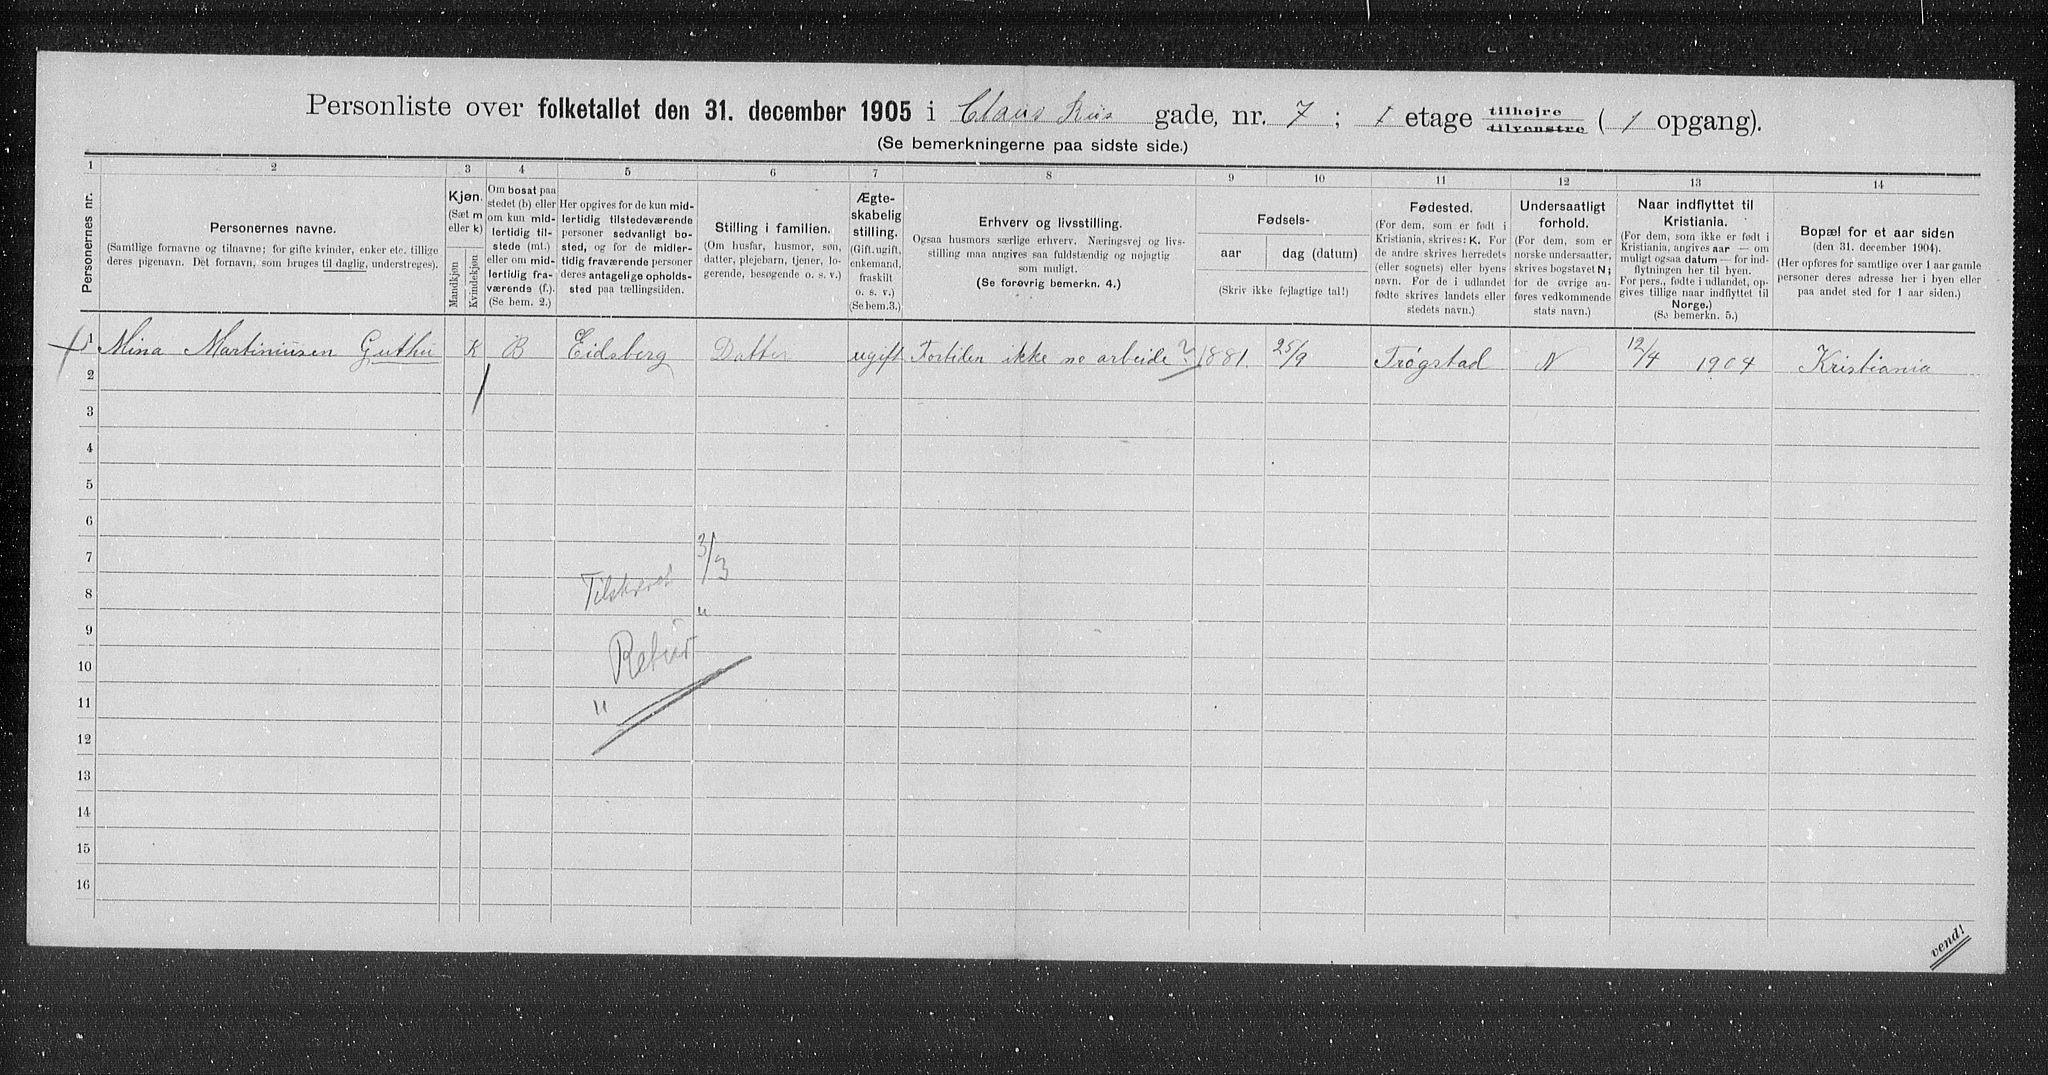 Personliste over folketallet den 31. december 1905 i Claus Riis gade, nr. 7 ; 1 etage tilhøjre tilvenstre ( 1 opgang).
(Se bemerkningerne paa sidste side.)
1 2 3 4 5 6 7 8 9 10 11 12 13 14
Personernes nr.
Personernes navne.
(Samtlige fornavne og tilnavne; for gifte kvinder, enker etc. tillige
deres pigenavn. Det fornavn, som bruges til daglig, understreges).
Kjøn.
(Sæt m
eller k)
Mandkjøn
Kvindekjøn
Om bosat paa
stedet (b) eller
om kun mid-
lertidig til-
stede (mt.)
eller om mid-
lertidig fra-
værende (f.)
(Se bem. 2.)
Her opgives for de kun mid-
lertidig tilstedeværende
personer sedvanlig bo-
sted, og for de midler-
tidig fraværende personer
deres antagelige opholds-
sted paa tællingstiden.
Stilling i familien.
(Om husfar, husmor, søn,
datter, plejebarn, tjener, lo-
gerende, besøgende o. s. v.)
Ægte-
skabelig
stilling.
(Gift, ugift,
enkemand,
fraskilt
o. s. v.)
(Se bem.3.)
Erhverv og livsstilling.
Ogsaa husmors særlige erhverv. Næringsvej og livs-
stilling maa angives saa fuldstændig og nøjagtig
som muligt.
(Se forøvrig bemerkn. 4.)
Fødsels-
aar
dag (datum)
(Skriv ikke fejlagtige tal!)
Fødested.
(For dem, som er født i
Kristiania, skrives: K. For
de andre skrives herredets
(eller sognets) eller byens
navn. For de i udlandet
fødte skrives landets eller
stedets navn.)
Undersaatligt
forhold.
(For dem, som er
norske undersaatter,
skrives bogstavet N;
for de øvrige an-
føres vedkommende
stats navn.)
Naar indflyttet til
Kristiania.
(For dem, som ikke er født i
Kristiania, angives aar — om
muligt ogsaa datum — for ind-
flytningen her til byen.
For pers., fødte i udlandet, op-
gives tillige naar indflyttet til
Norge.)
(Se bemerkn. 5.)
Bopæl for et aar siden
(den 31. december 1904).
(Her opføres for samtlige over 1 aar gamle
personer deres adresse her i byen eller
paa andet sted for 1 aar siden.)
1 Mina Martiniusen Guthu K B Eidsberg Datter ugift Fortiden ikke no arbeide ? 1881. 25/9 Trøgstad N 12/4 1904 Kristiania
2
3
4
5
6
7 3/3
8 Tilskrevet "
9
10 Retur
11 "
12
13
14
15
16
vend!